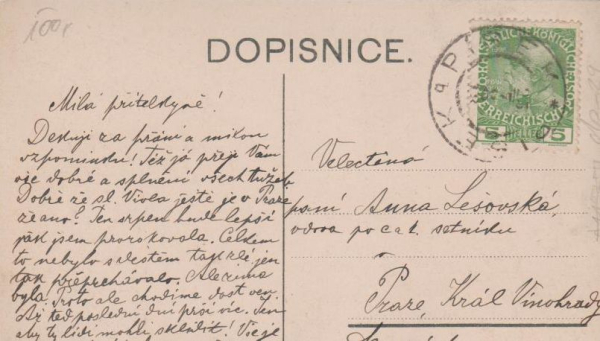 100,-
DOPISNICE.
Milá přítelkyně!
Děkuji za přání a milou
vzpomínku! Též já přeji Vám
vše dobré a splnění všech tužeb.
Dobře že sl. Viola ještě je v Praze
že ano? Ten srpen bude lepší
jak jsem prorokovala. Celkem
to nebylo s deštěm tak zlé jen
tak přeprchávalo. Ale zima
byla. Proto ale chodíme dost ven.
Až teď poslední dni prší víc. Jen
aby ti lidi mohli sklidit! Vše je
Velectěná
paní Anna Lešovská,
vdova po c. a k. setníku
v
Praze, Král Vinohrady
5